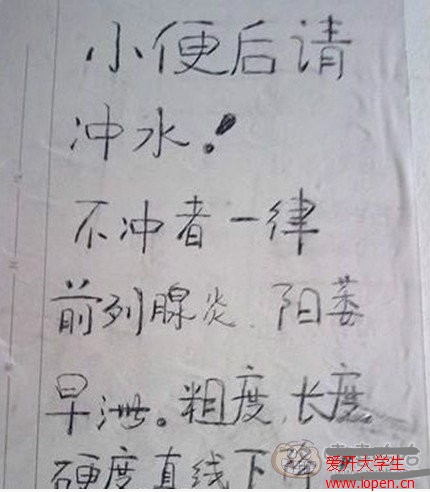 小便后请
冲水！
不冲者一律
前列腺炎、阳萎
早泄。粗度、长度、
硬度直线下降
爱开大学生
www.iopen.cn